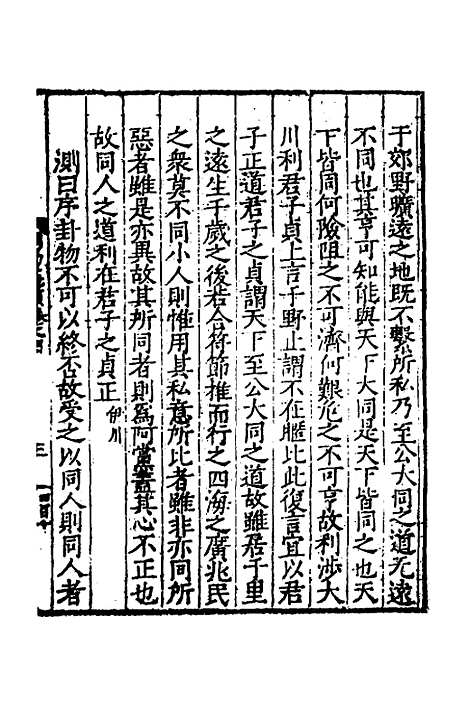 于郊野曠遠之地既不繫所私乃至公大同之道无遠
不同也其亨可知能與天下大同是天下皆同之也天
下皆同何險阻之不可濟何艱危之不可亨故利涉大
川利君子貞上言于野止謂不在暱比此復言宜以君
子正道君子之貞謂天下至公大同之道故雖居千里
之遠生千歲之後若合符節推而行之四海之廣兆民
之衆莫不同小人則惟用其私意所比者雖非亦同所
惡者雖是亦異故其所同者則為阿黨蓋其心不正也
故同人之道利在君子之貞正伊川
測曰序卦物不可以終否故受之以同人則同人者